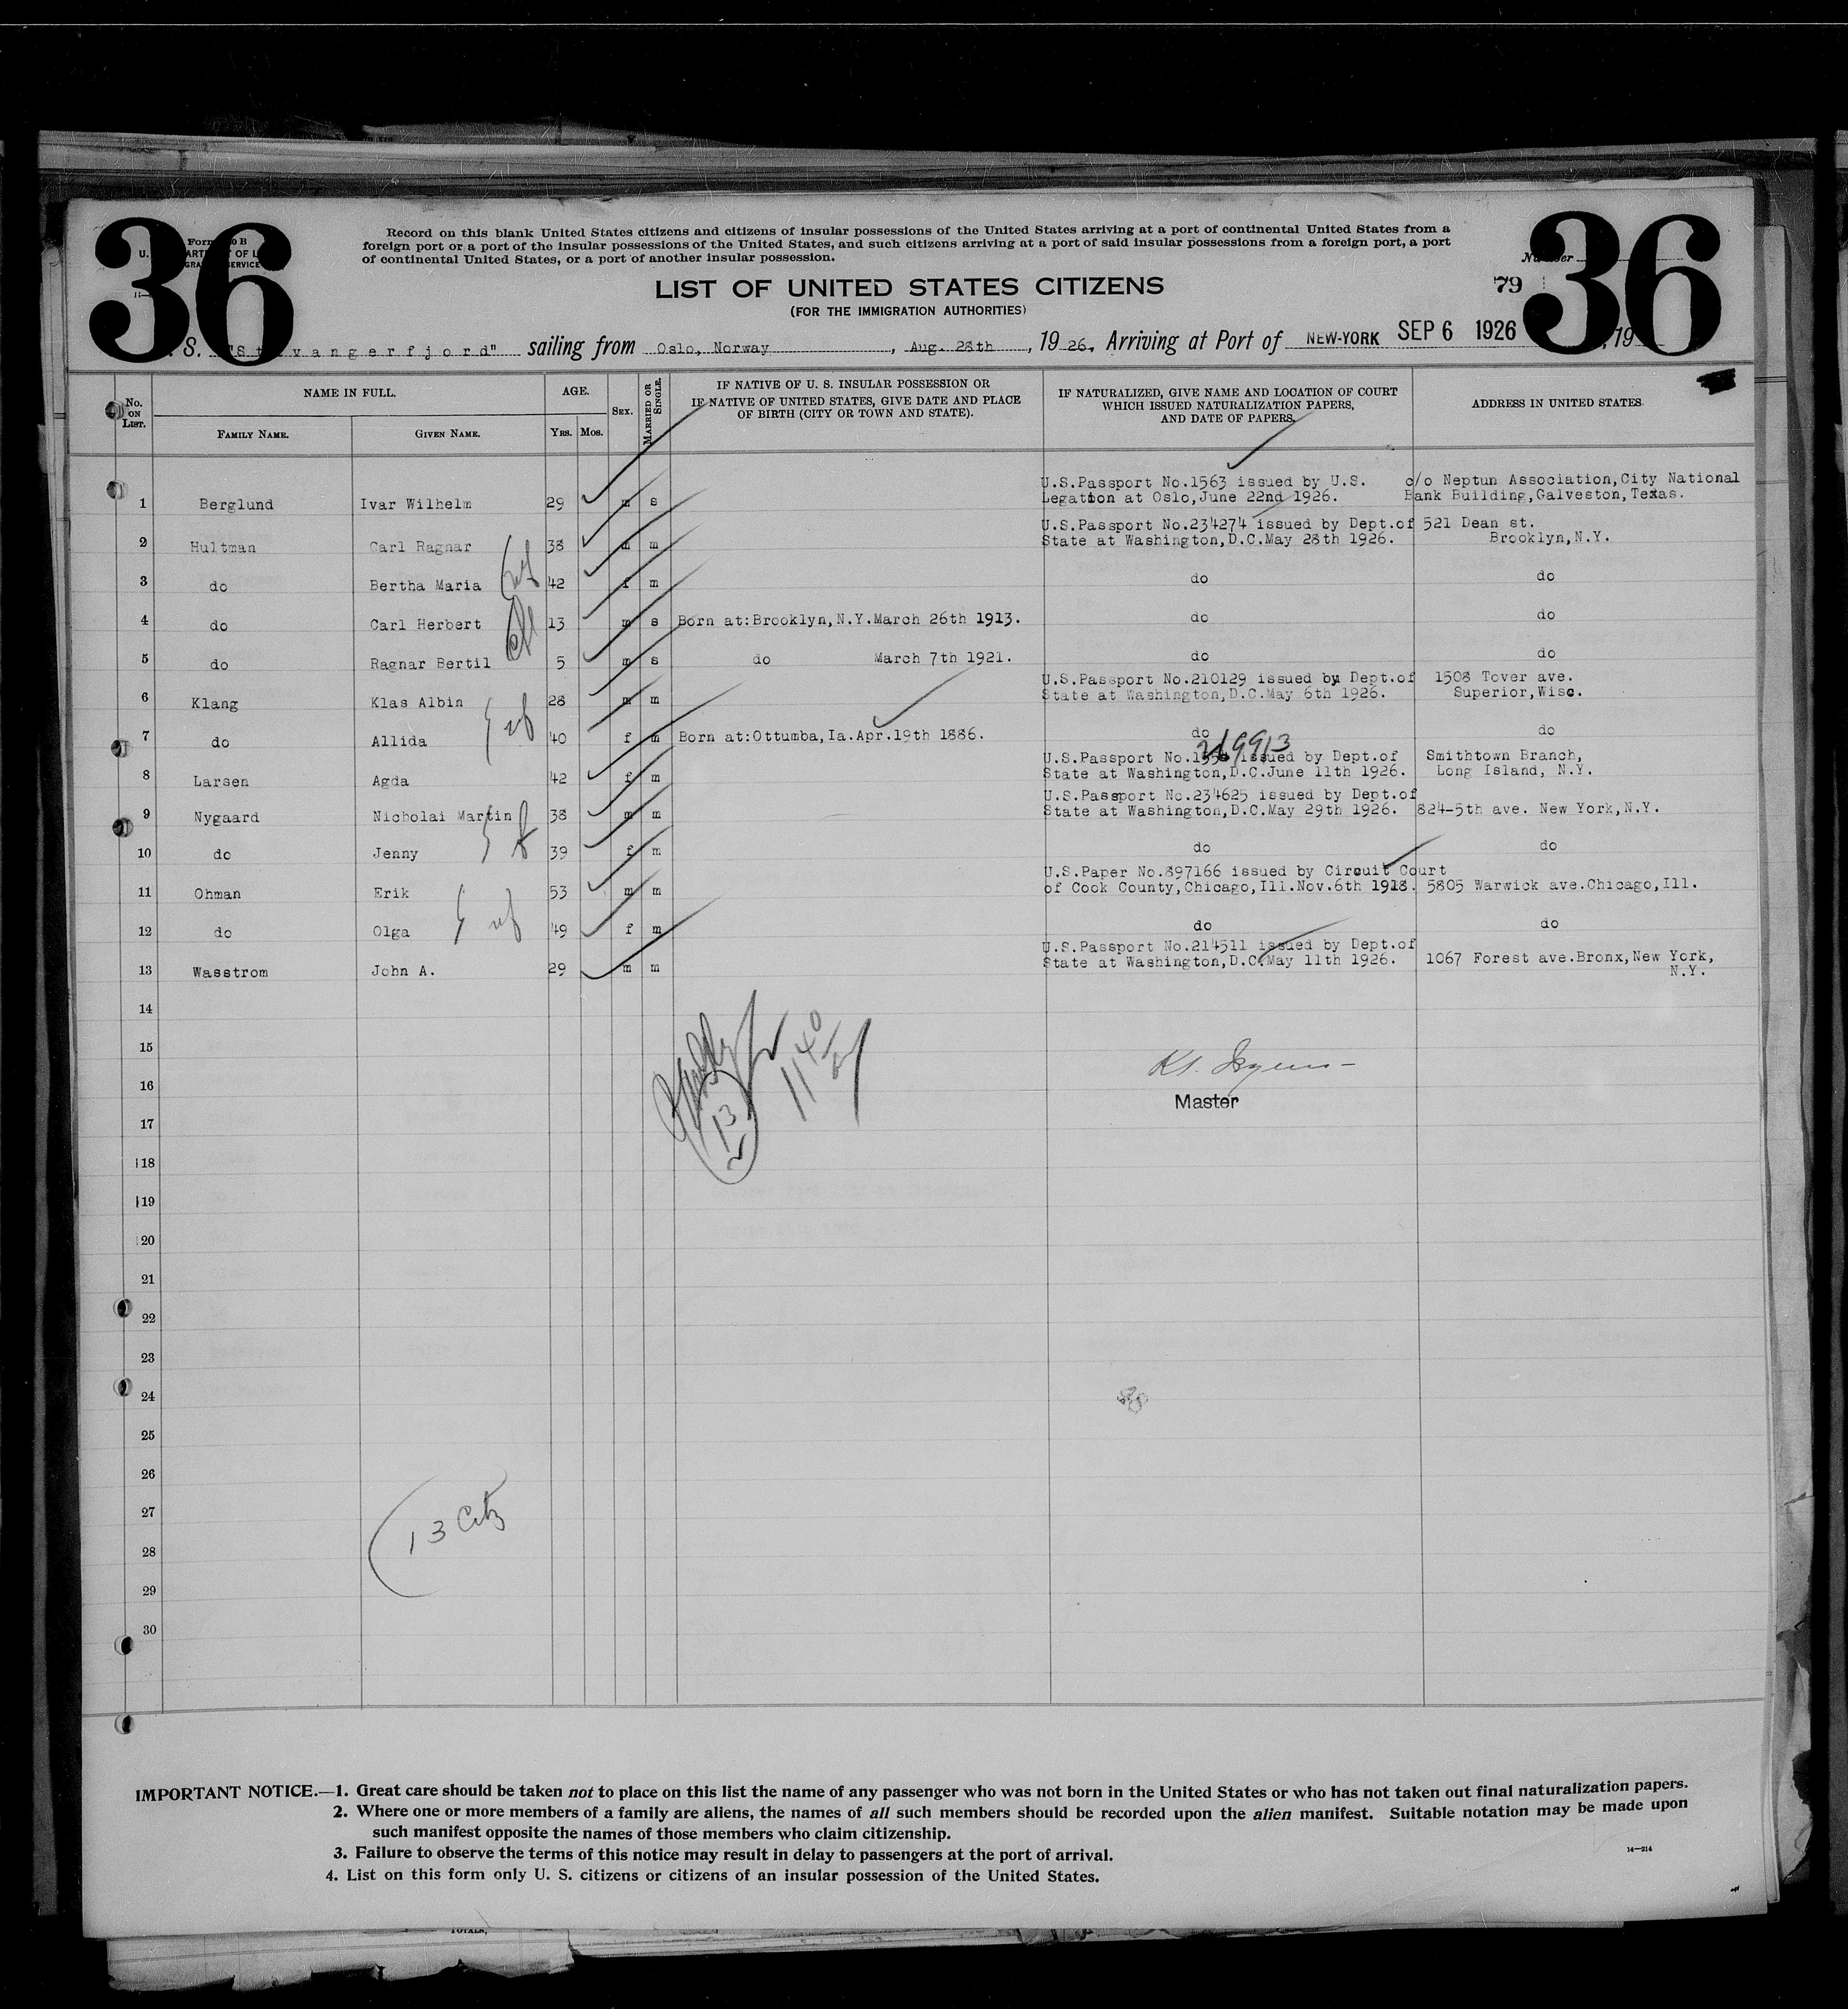 36
36
Form 
Record on this blank United States citizens and citizens of insular possessions of the United States arriving at a port of continental United States from a
foreign port or a port of the insular possessions of the United States, and such citizens arriving at a port of said insular possessions from a foreign port, a port
of continental United States, or a port of another insular possession.
LIST OF UNITED STATES CITIZENS
79
(FOR THE IMMIGRATION AUTHORITIES)
S. "Stavangerfjord" sailing from Oslo, Norway, Aug. 28th, 1926, Arriving at Port of NEW-YORK SEP 6 1926, 19
No. ON LIST.
NAME IN FULL.
FAMILY NAME.
GIVEN NAME.
AGE.
YRS. MOS.
SEX.
MARRIED OR SINGLE.
IF NATIVE OF U. S. INSULAR POSSESSION OR
IF NATIVE OF UNITED STATES, GIVE DATE AND PLACE
OF BIRTH (CITY OR TOWN AND STATE).
IF NATURALIZED, GIVE NAME AND LOCATION OF COURT
WHICH ISSUED NATURALIZATION PAPERS,
AND DATE OF PAPERS.
ADDRESS IN UNITED STATES.
U.S.Passport No.1563 issued by U.S. c/o Neptun Association,City National
1 Berglund Ivar Wilhelm 29 m s Legation at Oslo,June 22nd 1926. Bank Building,Galveston,Texas.
U.S.Passport No.234274 issued by Dept.of 521 Dean st.
2 Hultman Carl Ragnar 38 m m State at Washington,D.C.May 28th 1926. Brooklyn,N.Y.
3 do Bertha Maria 42 f m do do
4 do Carl Herbert 13 m s Born at:Brooklyn,N.Y.March 26th 1913. do do
5 do Ragnar Bertil 5 m s do March 7th 1921. do do
U.S.Passport No.210129 issued by Dept.of 1508 Tover ave.
6 Klang Klas Albin 28 m m State at Washington,D.C.May 6th 1926. Superior,Wisc.
7 do Allida 40 f m Born at:Ottumba,Ia.Apr.19th 1886. do do
219913
U.S.Passport No. issued by Dept.of Smithtown Branch,
8 Larsen Agda 42 f m State at Washington,D.C.June 11th 1926. Long Island, N.Y.
U.S.Passport No.234625 issued by Dept.of
9 Nygaard Nicholai Martin 38 m m State at Washington,D.C.May 29th 1926. 824-5th ave. New York,N.Y.
10 do Jenny 39 f m do do
U.S.Paper No.897166 issued by Circuit Court
11 Ohman Erik 53 m m of Cook County,Chicago,Ill.Nov.6th 1918. 5805 Warwick ave.Chicago,Ill.
12 do Olga 49 f m do do
U.S.Passport No.214511 issued by Dept.of
13 Wasstrom John A. 29 m m State at Washington,D.C.May 11th 1926. 1067 Forest ave.Bronx,New York,
N.Y.
14
15
16
Master
17
13
1140
18
19
20
21
22
23
24
25
26
27
13 Cits
28
29
30
IMPORTANT NOTICE.—1. Great care should be taken not to place on this list the name of any passenger who was not born in the United States or who has not taken out final naturalization papers.
2. Where one or more members of a family are aliens, the names of all such members should be recorded upon the alien manifest. Suitable notation may be made upon
such manifest opposite the names of those members who claim citizenship.
3. Failure to observe the terms of this notice may result in delay to passengers at the port of arrival.
14—214
4. List on this form only U. S. citizens or citizens of an insular possession of the United States.
TOTALS,